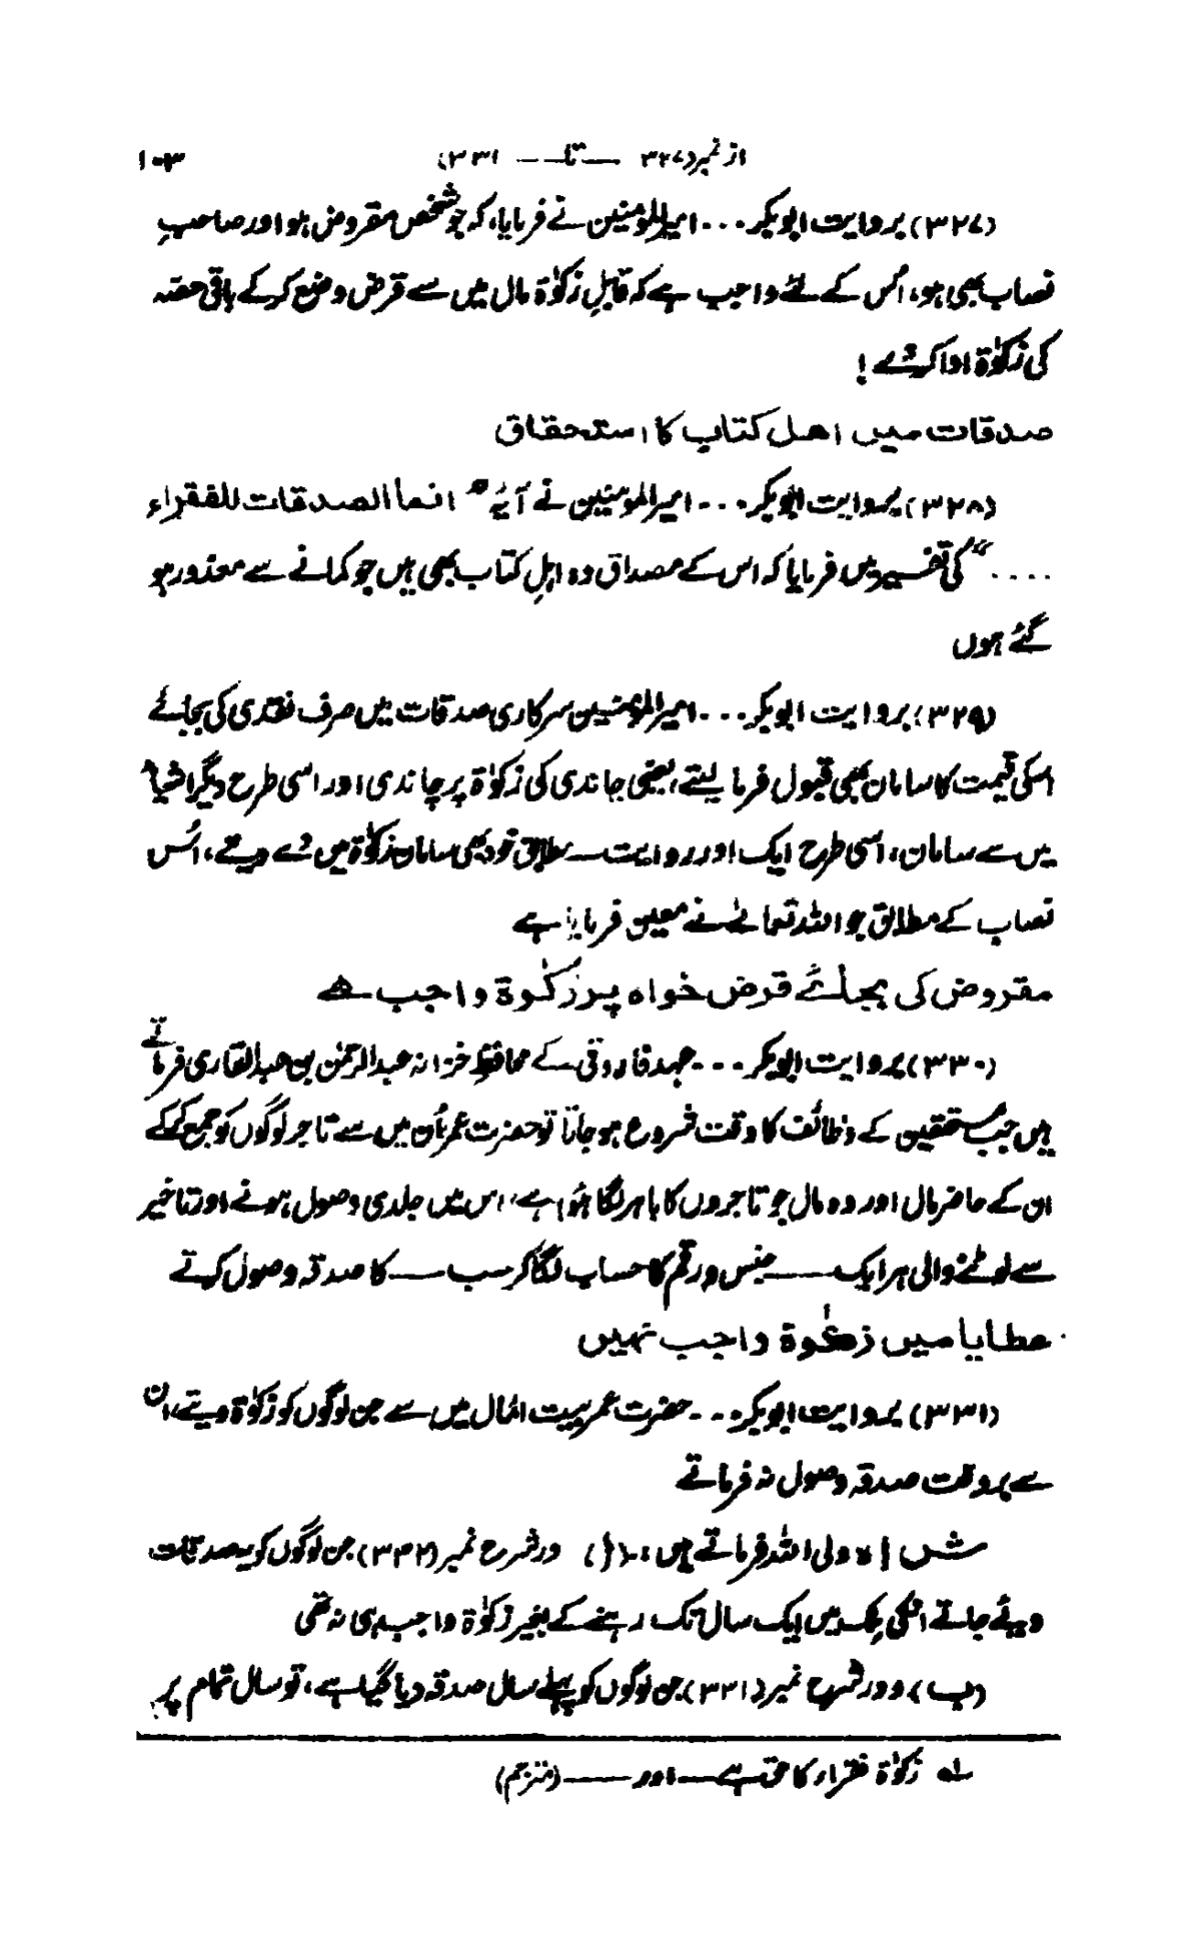 از نمبر(۳۲۷ — تا — ۳۳۱) ۱۰۳
(۳۲۷) بروایت ابوبکر... امیرالمؤمنین نے فرمایا، کہ جو شخص مقروض ہو اور صاحبِ
نصاب بھی ہو، اُس کے لئے واجب ہے کہ قابلِ زکوٰۃ مال میں سے قرض وضع کرکے باقی حصّہ
کی زکوٰۃ ادا کرے!
صدقات میں اھل کتاب کا استحقاق
(۳۲۸) بروایت ابوبکر... امیرالمومنین نے آیۂ " انما الصدقات للفقراء
...." کی تفسیر میں فرمایا کہ اس کے مصداق وہ اہلِ کتاب بھی ہیں جو کمانے سے معذور ہو
گئے ہوں
(۳۲۹) بروایت ابوبکر... امیرالمؤمنین سرکاری صدقات میں صرف نقدی کی بجائے
اسکی قیمت کا سامان بھی قبول فرما لیتے، یعنی چاندی کی زکوٰۃ پر چاندی اور اسی طرح دیگر اشیاء
میں سے سامان، اسی طرح ایک اور روایت — مطابق خود بھی سامان زکوٰۃ میں دے دیتے، اُس
نصاب کے مطابق جو اللہ تعالےٰ نے معین فرمایا ہے
مقروض کی بجائے قرض خواہ پر زکوٰۃ واجب ہے
(۳۳۰) بروایت ابوبکر... عہد فاروقی کے محافظِ خزانہ عبدالرحمٰن بن عبدالقاری فرماتے
ہیں جب مستحقین کے وظائف کا وقت شروع ہو جاتا تو حضرت عمرؓ ان میں سے تاجر لوگوں کو جمع کرکے
ان کے حاضر مال اور وہ مال جو تاجروں کا باہر لگا ہؤا ہے، اس میں جلدی وصول ہونے اور تاخیر
سے لوٹنے والی ہر ایک — جنس و رقم کا حساب لگا کر سب — کا صدقہ وصول کرتے
عطایا میں زکوٰۃ واجب نہیں
(۳۳۱) بروایت ابوبکر... حضرت عمر بیت المال میں سے جن لوگوں کو زکوٰۃ دیتے، ان
سے بروقت صدقہ وصول نہ فرماتے
شاہ ولی اللہ فرماتے ہیں :- (ا) در شرح نمبر (۳۳۲) جن لوگوں کو یہ صدقات
دیئے جاتے انکی ملک میں ایک سال تک رہنے کے بغیر زکوٰۃ واجب ہی نہ تھی
(ب) در شرح نمبر (۳۳۱) جن لوگوں کو پہلے سال صدقہ دیا گیا ہے، تو سال تمام پر
لہ زکوٰۃ فقراء کا حق ہے — اور — (مترجم)